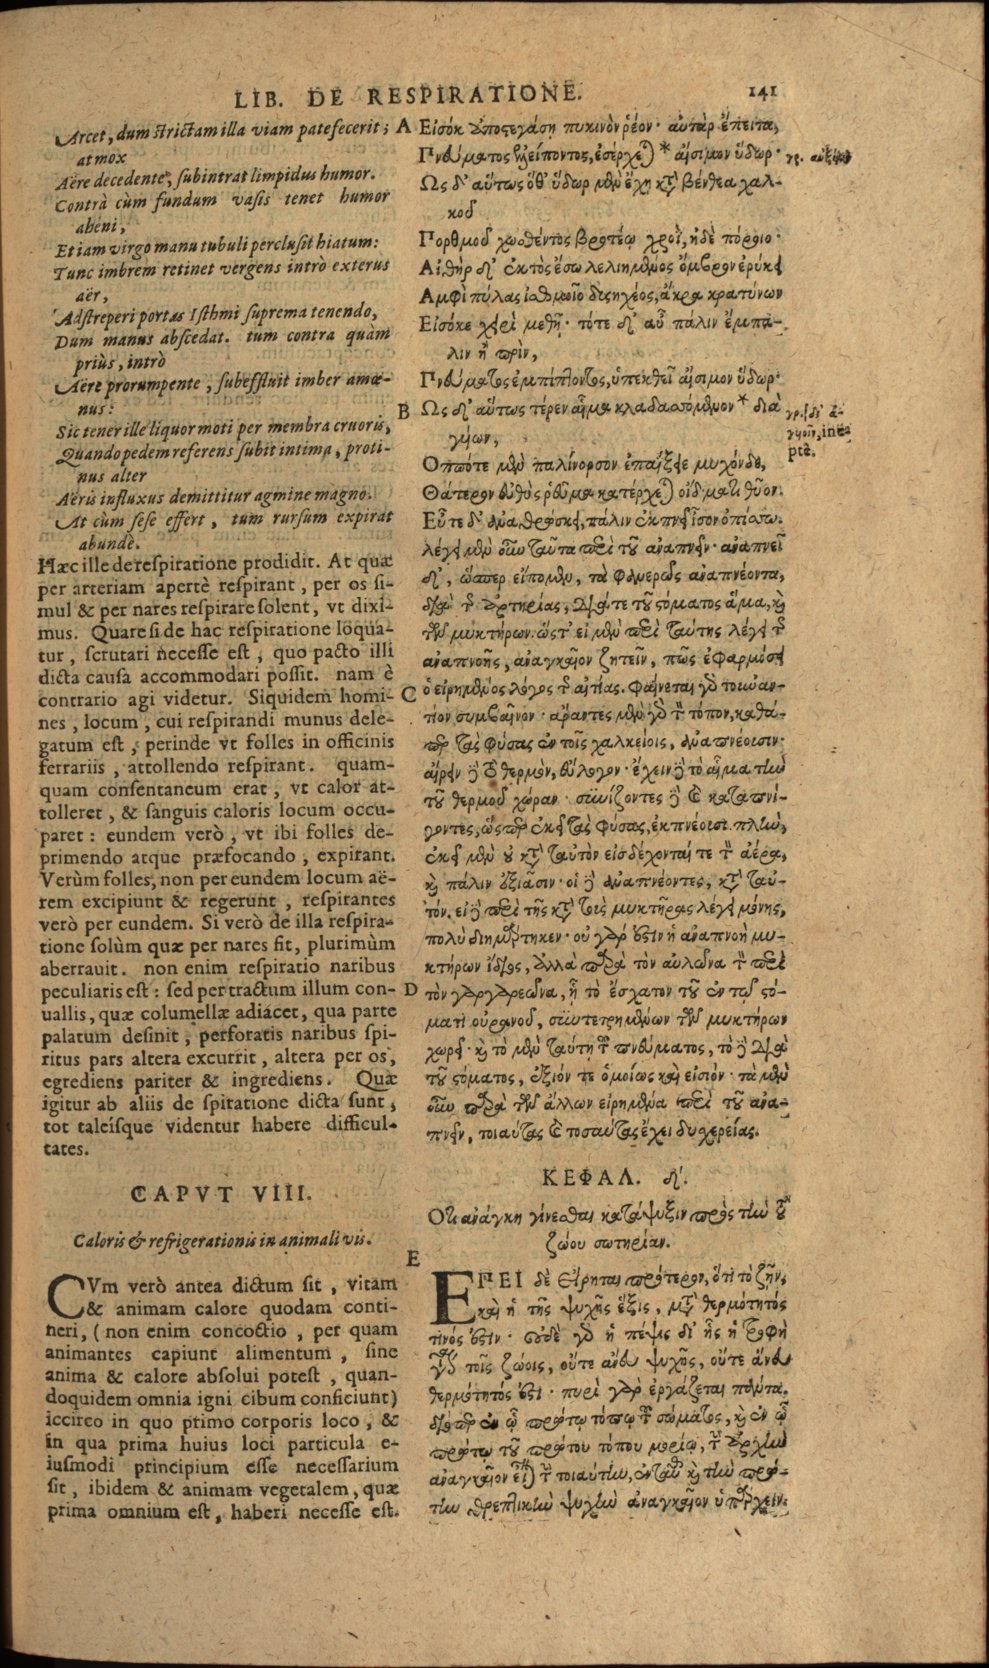 LIB. DE RESPIRATIONE. 141
Arcet, dum strictam illa viam patefecerit;
at mox
Aëre decedente, subintrat limpidus humor.
Contrà cùm fundum vasis tenet humor
aheni,
Et iam virgo manu tubuli perclusit hiatum:
Tunc imbrem retinet vergens intrò exterus
aër,
Adstreperi portas Isthmi suprema tenendo,
Dum manus abscedat. tum contra quàm
priùs, intrò
Aëre prorumpente, subeffluit imber amœ-
nus:
Sic tener ille liquor moti per membra cruoris,
Quando pedem referens subit intima, proti-
nus alter
Aëris influxus demittitur agmine magno.
At cùm sese effert, tum rursum expirat
abundè.
Hæc ille de respiratione prodidit. At quæ
per arteriam apertè respirant, per os si-
mul & per nares respirare solent, vt dixi-
mus. Quare si de hac respiratione loqua-
tur, scrutari necesse est, quo pacto illi
dicta causa accommodari possit. nam è
contrario agi videtur. Siquidem homi-
nes, locum, cui respirandi munus dele-
gatum est, perinde vt folles in officinis
ferrariis, attollendo respirant. quam-
quam consentaneum erat, vt calor at-
tolleret, & sanguis caloris locum occu-
paret: eundem verò, vt ibi folles de-
primendo atque præfocando, expirant.
Verùm folles, non per eundem locum aë-
rem excipiunt & regerunt, respirantes
verò per eundem. Si verò de illa respira-
tione solùm quæ per nares fit, plurimùm
aberrauit. non enim respiratio naribus
peculiaris est: sed per tractum illum con-
uallis, quæ columellæ adiacet, qua parte
palatum desinit, perforatis naribus spi-
ritus pars altera excurrit, altera per os,
egrediens pariter & ingrediens. Quæ
igitur ab aliis de spiratione dicta sunt,
tot taleísque videntur habere difficul-
tates.
CAPVT VIII.
Caloris & refrigerationis in animali vis.
CVm verò antea dictum sit, vitam
& animam calore quodam conti-
neri, (non enim concoctio, per quam
animantes capiunt alimentum, sine
anima & calore absolui potest, quan-
doquidem omnia igni cibum conficiunt)
iccirco in quo primo corporis loco, &
in qua prima huius loci particula e-
iusmodi principium esse necessarium
sit, ibidem & animam vegetalem, quæ
prima omnium est, haberi necesse est.
A
B
C
D
E
Εἰσόκ ἀποστεγάσῃ πυκινὸν ῥέον· αὐτὰρ ἔπειτα,
Πνεύματος ἐλλείποντος, ἐσέρχεται * αἴσιμον ὕδωρ·
Ως δ' αὔτως ὅθ' ὕδωρ μὲν ἔχῃ κατὰ βένθεα χαλ-
κοῦ
Πορθμοῦ χωσθέντος βροτέῳ χροῒ, ἠδὲ πόροιο·
Αἰθὴρ δ' ἐκτὸς ἔσω λελιημένος ὄμβρον ἐρύκει
Αμφὶ πύλας ἰσθμοῖο δυσηχέος, ἄκρα κρατύνων
Εἰσόκε χειρὶ μεθῇ· τότε δ' αὖ πάλιν ἔμπα-
λιν ἢ πρὶν,
Πνεύματος ἐμπίπτοντος, ὑπεκθεῖ αἴσιμον ὕδωρ·
Ως δ' αὔτως τέρεν αἷμα κλαδασσόμενον * διὰ
γυίων,
Οππότε μὲν παλίνορσον ἐπαΐξειε μυχόνδε,
Θάτερον εὐθὺς ῥεῦμα κατέρχεται οἴδματι θῦον.
Εὖτε δ' ἀναθρώσκει, πάλιν ἐκπνεῖ ἶσον ὀπίσσω.
λέγει μὲν οὖν ταῦτα περὶ τοῦ ἀναπνεῖν· ἀναπνεῖ
δ', ὥσπερ εἴπομεν, τὰ φανερῶς ἀναπνέοντα,
διὰ τῆς ἀρτηρίας, διά τε τοῦ στόματος ἅμα, καὶ
τῶν μυκτήρων. ὥστ' εἰ μὲν περὶ ταύτης λέγει τῆς
ἀναπνοῆς, ἀναγκαῖον ζητεῖν, πῶς ἐφαρμόσει
ὁ εἰρημένος λόγος τῆς αἰτίας. φαίνεται γὰρ τοὐναν-
τίον συμβαῖνον· ἄραντες μὲν γὰρ τὸν τόπον, καθά-
περ τὰς φύσας ἐν τοῖς χαλκείοις, ἀναπνέουσιν·
αἴρειν δὲ τὸ θερμὸν, εὔλογον· ἔχειν δὲ τὸ αἷμα τὴν
τοῦ θερμοῦ χώραν· συνίζοντες δὲ καὶ καταπνί-
γοντες, ὥσπερ ἐκεῖ τὰς φύσας, ἐκπνέουσι. πλὴν,
ἐκεῖ μὲν οὐ κατὰ ταὐτὸν εἰσδέχονταί τε τὸν ἀέρα,
καὶ πάλιν ἐξιᾶσιν· οἱ δὲ ἀναπνέοντες, κατὰ ταὐ-
τόν. εἰ δὲ περὶ τῆς κατὰ τοὺς μυκτῆρας λέγει μόνης,
πολὺ διημάρτηκεν· οὐ γάρ ἐστιν ἡ ἀναπνοὴ μυ-
κτήρων ἴδιος, ἀλλὰ παρὰ τὸν αὐλῶνα τὸν περὶ
τὸν γαργαρεῶνα, ᾗ τὸ ἔσχατον τοῦ ἐν τῷ στό-
ματι οὐρανοῦ, συντετρημένων τῶν μυκτήρων
χωρεῖ· καὶ τὸ μὲν ταύτῃ τοῦ πνεύματος, τὸ δὲ διὰ
τοῦ στόματος, ἐξιόν τε ὁμοίως καὶ εἰσιόν· τὰ μὲν
οὖν παρὰ τῶν ἄλλων εἰρημένα περὶ τοῦ ἀνα-
πνεῖν, τοιαύτας καὶ τοσαύτας ἔχει δυχερείας.
ΚΕΦΑΛ. η'.
Οτι ἀνάγκη γίνεσθαι κατάψυξιν πρὸς τὴν τοῦ
ζώου σωτηρίαν.
ΕΠΕΙ δὲ εἴρηται πρότερον, ὅτι τὸ ζῆν,
καὶ ἡ τῆς ψυχῆς ἕξις, μετὰ θερμότητός
τινός ἐστιν· οὐδὲ γὰρ ἡ πέψις δι' ἧς ἡ τροφὴ
γίνεται τοῖς ζώοις, οὔτε ἄνευ ψυχῆς, οὔτε ἄνευ
θερμότητός ἐστι· πυρὶ γὰρ ἐργάζεται πάντα.
διόπερ ἐν ᾧ πρώτῳ τόπῳ τοῦ σώματος, καὶ ἐν ᾧ
πρώτῳ τοῦ πρώτου τόπου μορίῳ, τὴν ἀρχὴν
ἀναγκαῖον εἶναι τὴν τοιαύτην, ἐνταῦθα καὶ τὴν πρώ-
την θρεπτικὴν ψυχὴν ἀναγκαῖον ὑπάρχειν.